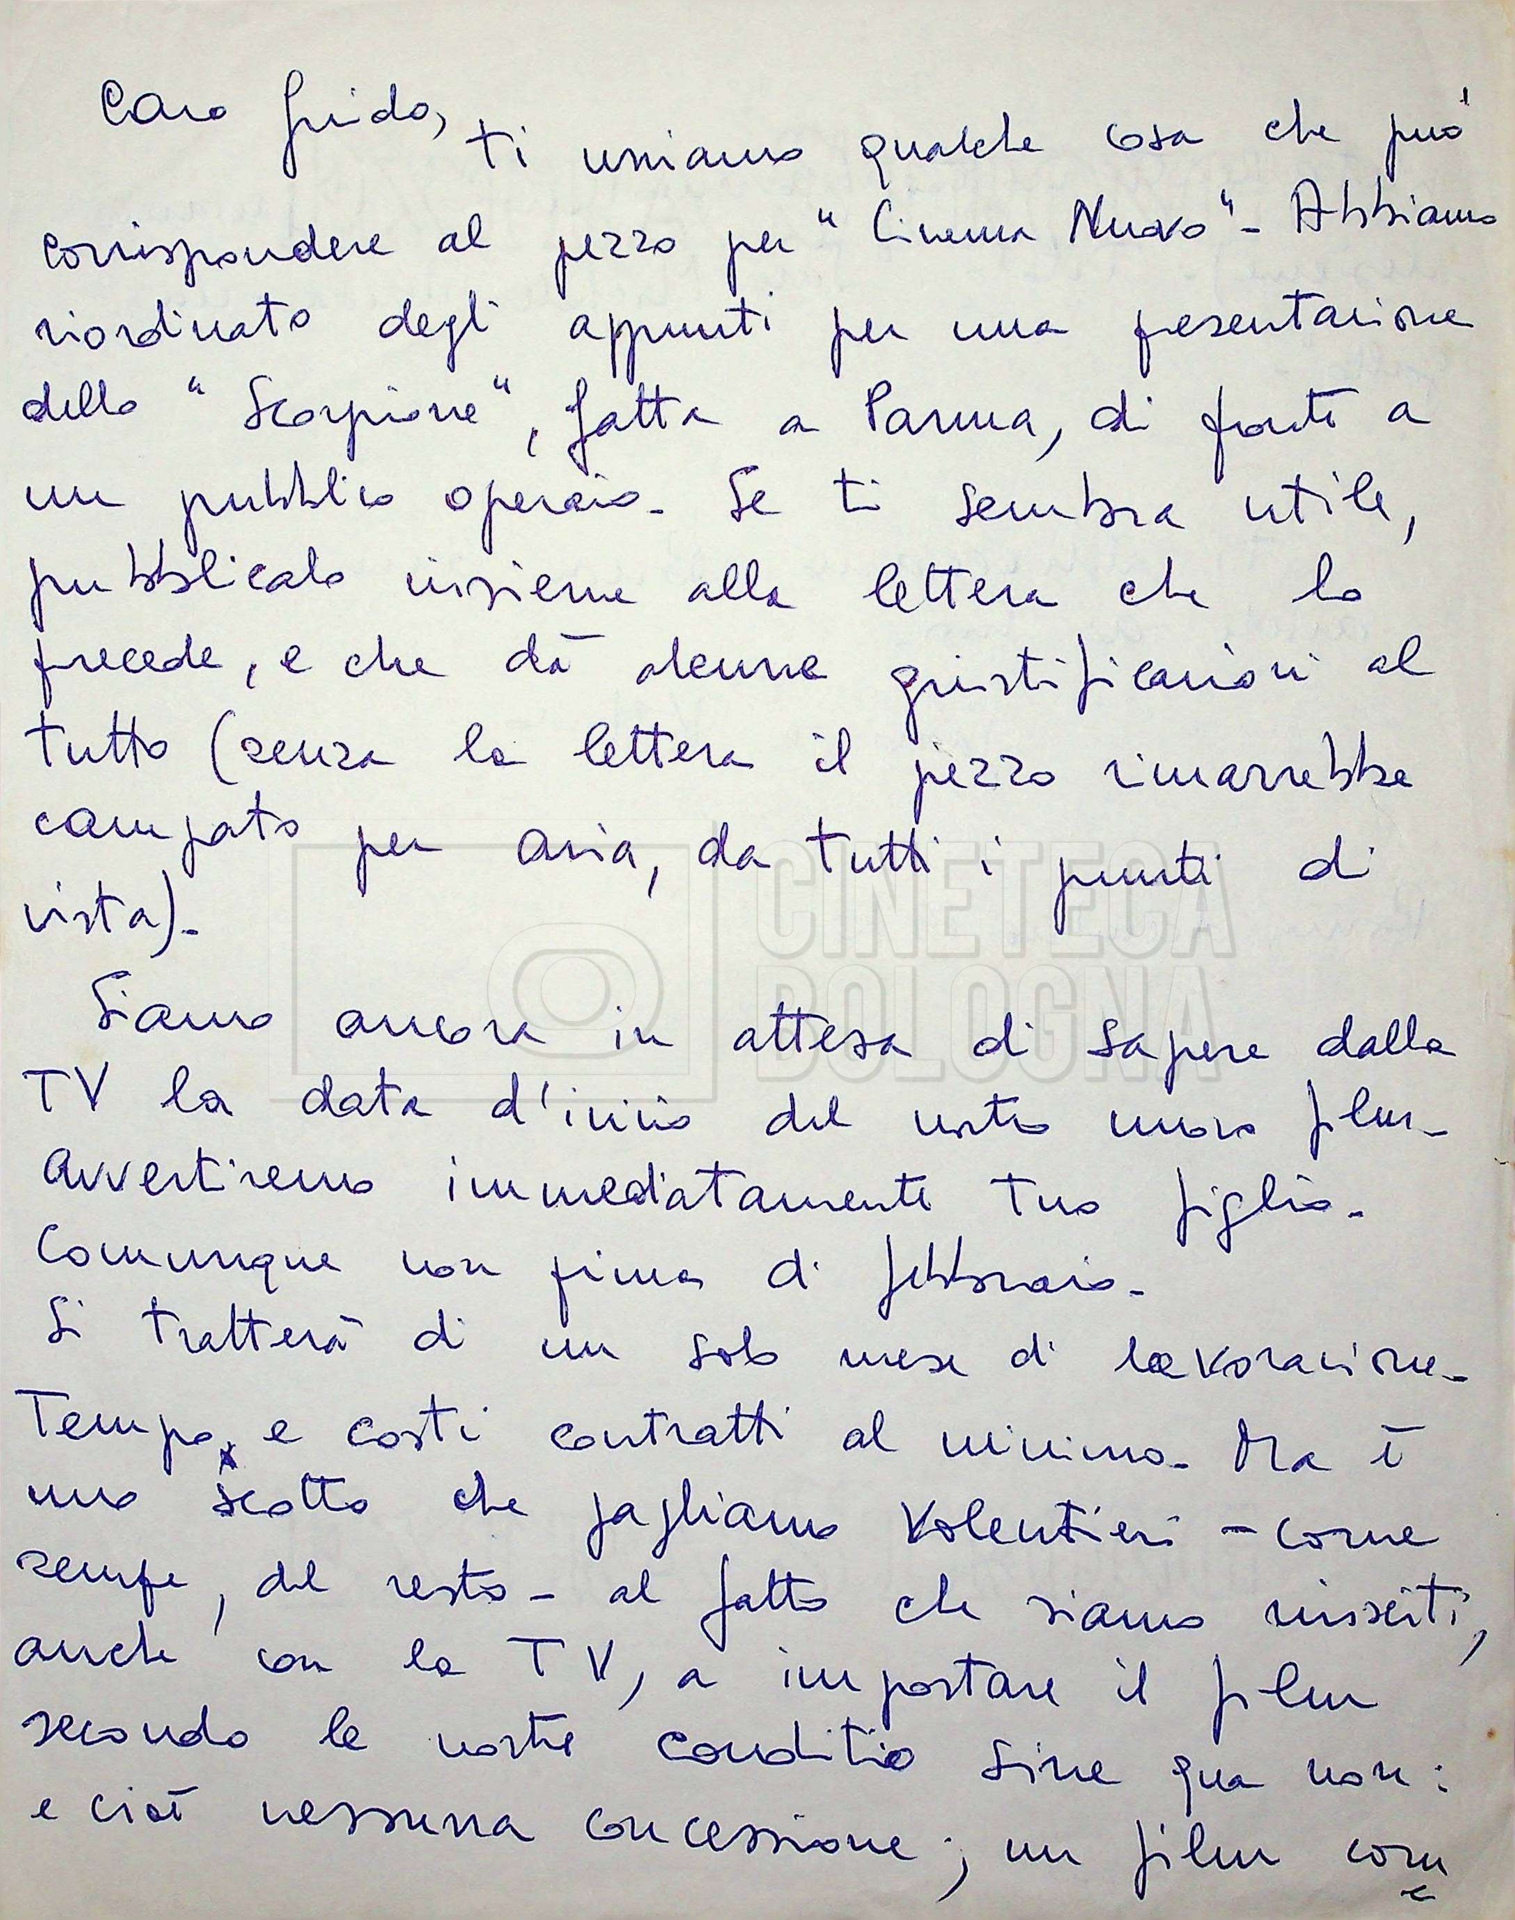 Caro Guido,
ti uniamo qualche cosa che può
corrispondere al pezzo per "Cinema Nuovo" - Abbiamo
riordinato degli appunti per una presentazione
dello "Scorpione", fatta a Parma, di fronte a
un pubblico operaio. Se ti sembra utile,
pubblicalo insieme alla lettera che lo
precede, e che dà alcune giustificazioni al
tutto (senza la lettera il pezzo rimarrebbe
campato per aria, da tutti i punti di
vista).
Siamo ancora in attesa di sapere dalla
TV la data d'inizio del nostro nuovo film.
Avvertiremo immediatamente tuo figlio.
Comunque non prima di febbraio.
Si tratterà di un solo mese di lavorazione.
Tempo e costi contratti al minimo. Ma è
uno scotto che paghiamo volentieri - come
sempre, del resto - al fatto che siamo riusciti,
anche con la TV, a impostare il film
secondo le nostre conditio sine qua non:
e cioè nessuna concessione; un film come
CINETECA
BOLOGNA